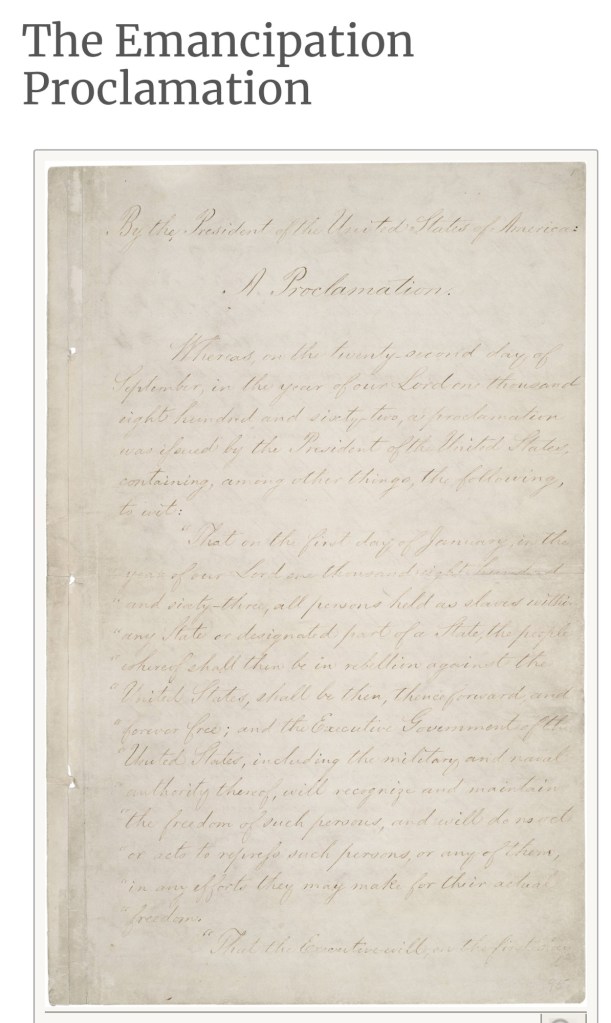 The Emancipation
Proclamation
By the President of the United States of America:
A Proclamation.
Whereas, on the twenty-second day of
September, in the year of our Lord one thousand
eight hundred and sixty-two, a proclamation
was issued by the President of the United States,
containing, among other things, the following,
to wit:
"That on the first day of January, in the
year of our Lord one thousand eight hundred
"and sixty-three, all persons held as slaves within
"any State or designated part of a State, the people
"whereof shall then be in rebellion against the
"United States, shall be then, thenceforward, and
"forever free; and the Executive Government of the
"United States, including the military and naval
"authority thereof, will recognize and maintain
"the freedom of such persons, and will do no act
"or acts to repress such persons, or any of them,
"in any efforts they may make for their actual
"freedom.
"That the Executive will, on the first